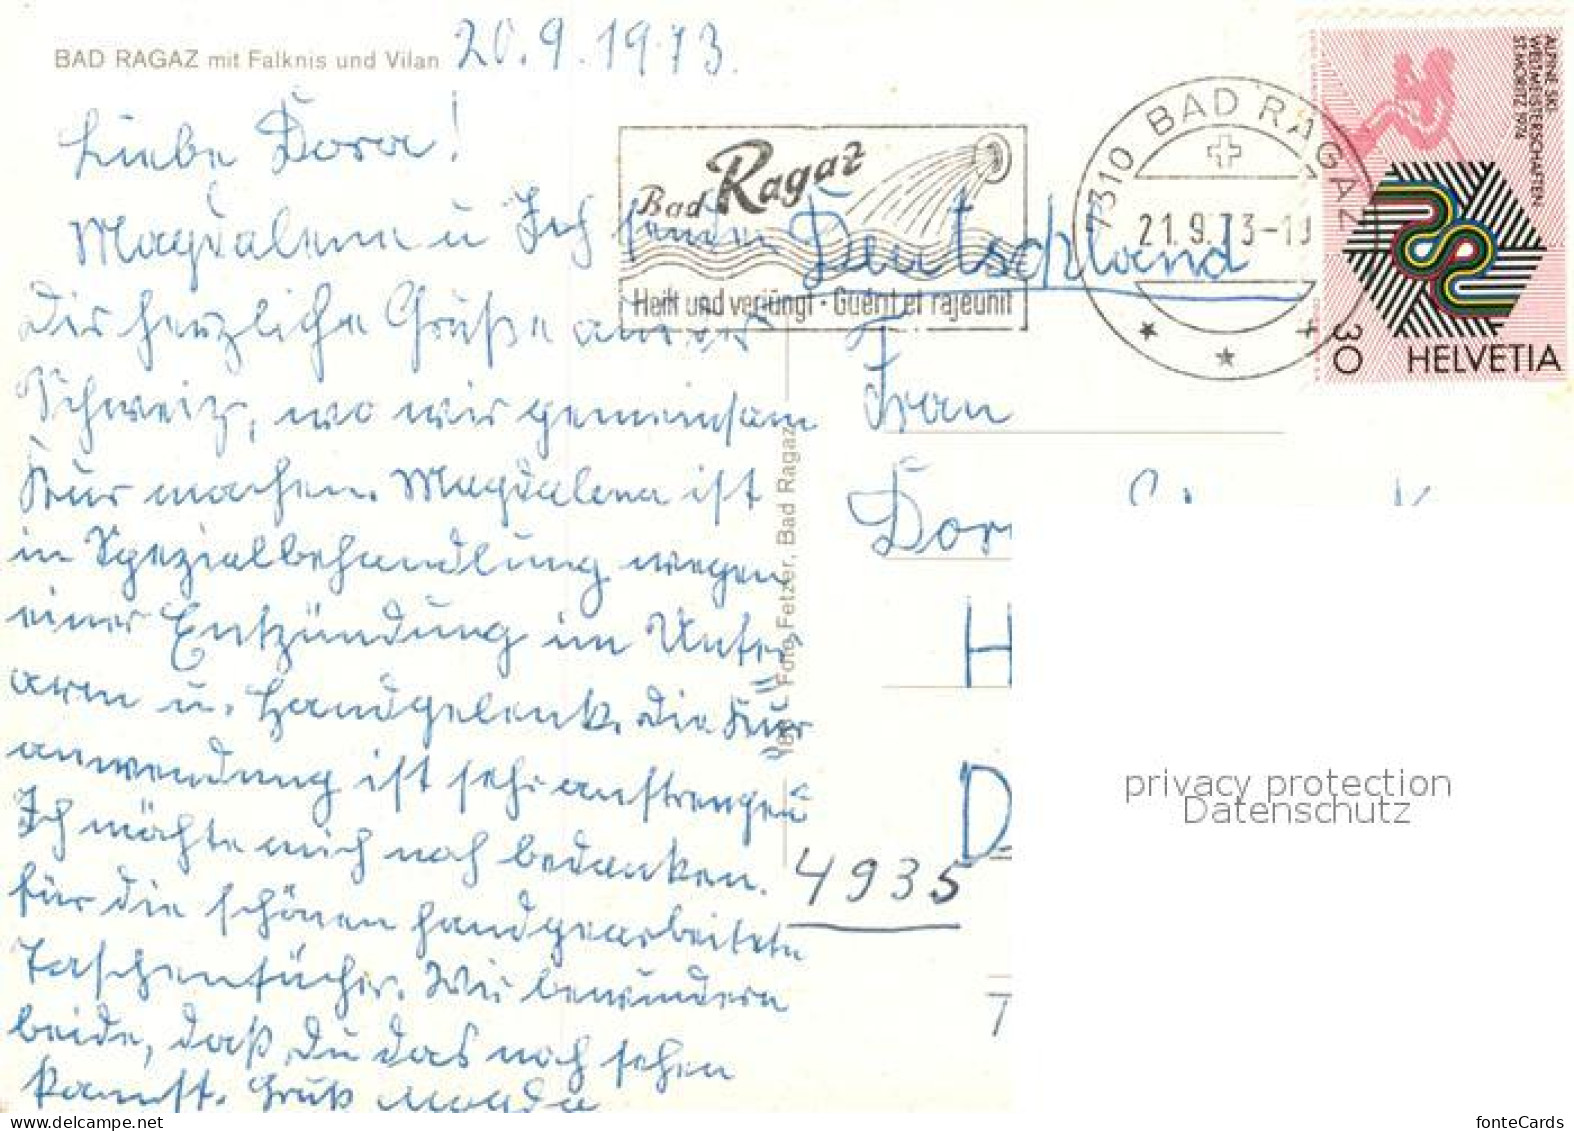 BAD RAGAZ mit Falknis und Vilan
20.9.1973.
Liebe Dora!
Magdalena u Ich senden
Dir herzliche Grüße aus der
Schweiz, wo wir gemeinsam
Kur machen. Magdalena ist
in Spezialbehandlung wegen
einer Entzündung im Unter
arm u. Handgelenk. Die Kur
anwendung ist sehr anstrengend
Ich möchte mich noch bedanken.
für die schönen handgearbeiteten
Taschentücher. Wir bewundern
beide, daß Du das noch sehen
kannst. Gruß Magda
Foto Fetzer, Bad Ragaz
Bad Ragaz
Heilt und verjüngt · Guérit et rajeunit
7310 BAD RAGAZ
21.9.73-19
ALPINE SKI-
WELTMEISTERSCHAFTEN
ST. MORITZ 1974
30
HELVETIA
Deutschland
Frau
Dor
H
D
4935
7
privacy protection
Datenschutz
fonteCards